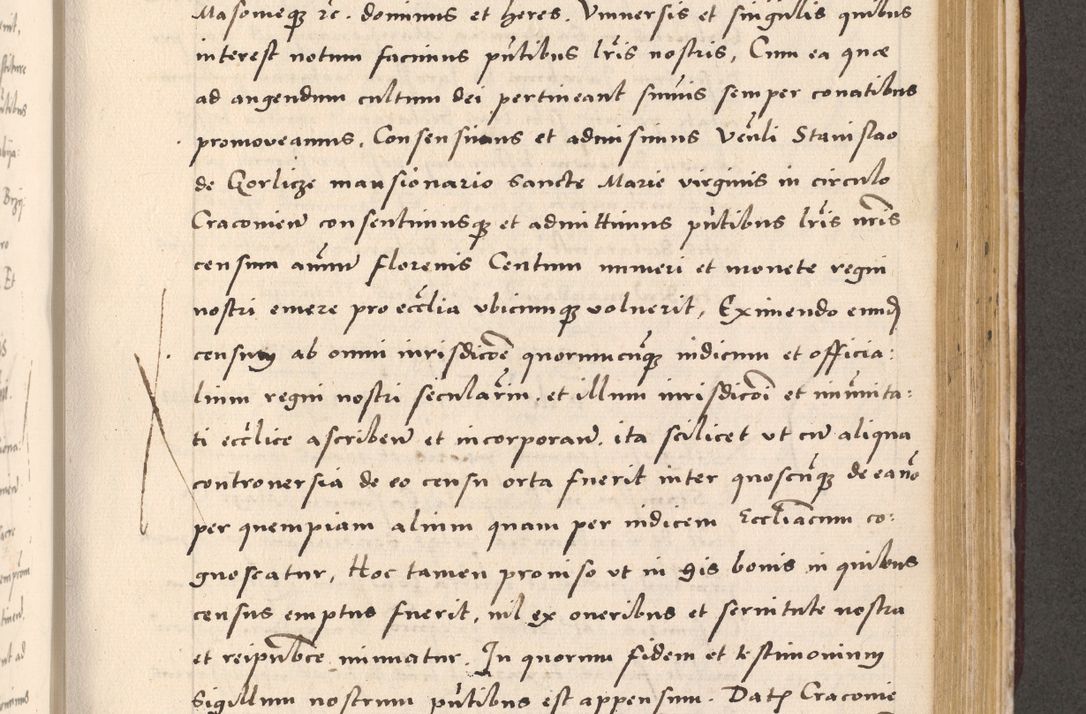 Masoueqȝ ꝛc. dominus et heres. Vniuersis et singulis quibus
interest notum facimus pn̄tibus lr̄is nostris, Cum ea quæ
ad augendum cultum dei pertineant summis semper conatibus
promoveamus, Consensimus et admisimus Ven̄li Stanislao
de Gorlicze mansionario Sancte Marie virginis in circulo
Cracovien̄ consentimusqȝ et admittimus pn̄tibus lr̄is nr̄is
censum annuu̅ florenis Centum numeri et monete regni
nostri emere pro eccl̄ia vbicumqȝ voluerit, Eximendo eund̄
censum ab omni iurisdicōe quorumcūqȝ iudicum et officia:
lium regni nostri seculariu̅m. et illum iurisdicōi et im̄unita:
ti eccl̄ice ascriben̄ et incorporan̄. ita scilicet vt cu̅ aliqua
controuersia de eo censu orta fuerit inter quoscūqȝ de ea nō
per quempiam alium quam per iudicem Eccl̄iacum co:
gnoscatur, Hoc tamen prouiso vt in his bonis in quibus
census emptus fuerit, nil ex oneribus et seruitute nostra
et reipub̄ce minuatur. In quorum fidem et testimonium
Sigillum nostrum pn̄tibus est appensum. Datꝭ Cracovie